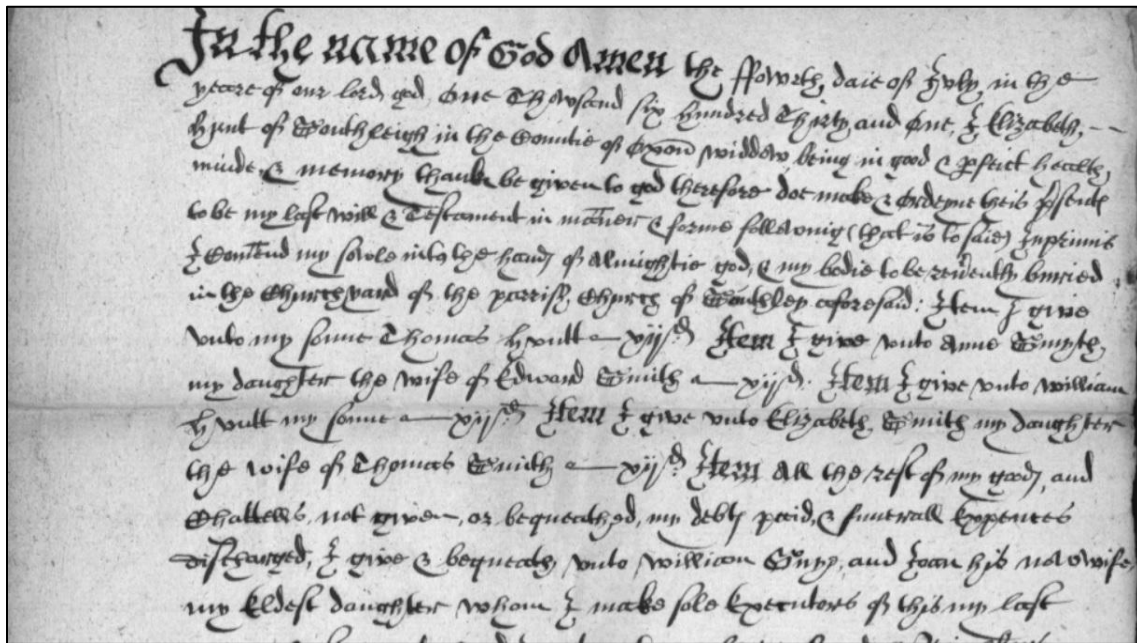 In the name of God Amen the ffowrth daie of Iuly in the
yeare of our lord god One Thowsand six hundred Thirty and One, I Elizabeth
Hunt of Southleigh in the Countie of Oxon widdow being in good & pfeict health,
minde, & memory thanks be given to god therefore doe make & Ordeyne theis pſents
to be my last will & Testament in maner & forme followinig (that is to saie) Inprimis
I Comend my sowle into the hands of Almightie god, & my bodie to be reverently buried
in the Churchyard of the parrish Church of Southley aforesaid: Item I give
vnto my sonne Thomas Hvntt xijd Item I give vnto Anne Smyth
my daughter the wife of Edward Smith xijd. Item I give vnto william
Hvntt my sonne xijd Item I give vnto Elizabeth Smith my daughter
the wife of Thomas Smith xijd Item All the rest of my goods, and
Chattells, not given, or bequeathed, my debts paid, & funerall Expences
discharged, I give & bequeath vnto william and Joan his now wife,
my Eldest daughter whom I make sole Executors of this my last